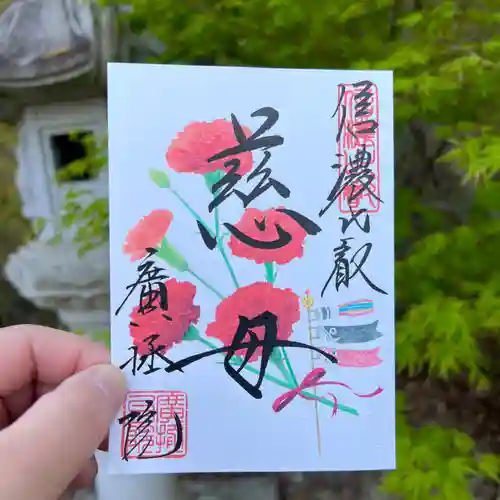 信濃比叡
慈母
廣拯院